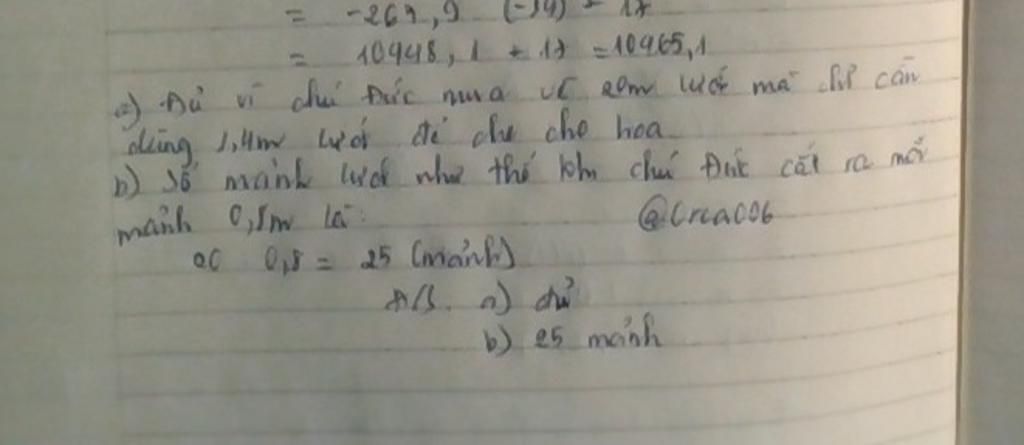 = -269,9 (-39) - 17
= 10948,1 + 17 = 10965,1
a) Đủ vì chú Đức mua về 20m lưới mà chỉ cần
dùng 1,4m lưới để che cho hoa
b) Số mảnh lưới như thế khi chú Đức cắt ra mỗi
mảnh 0,8m là:
20 0,8 = 25 (mảnh)
Đ/S. a) đủ
b) 25 mảnh